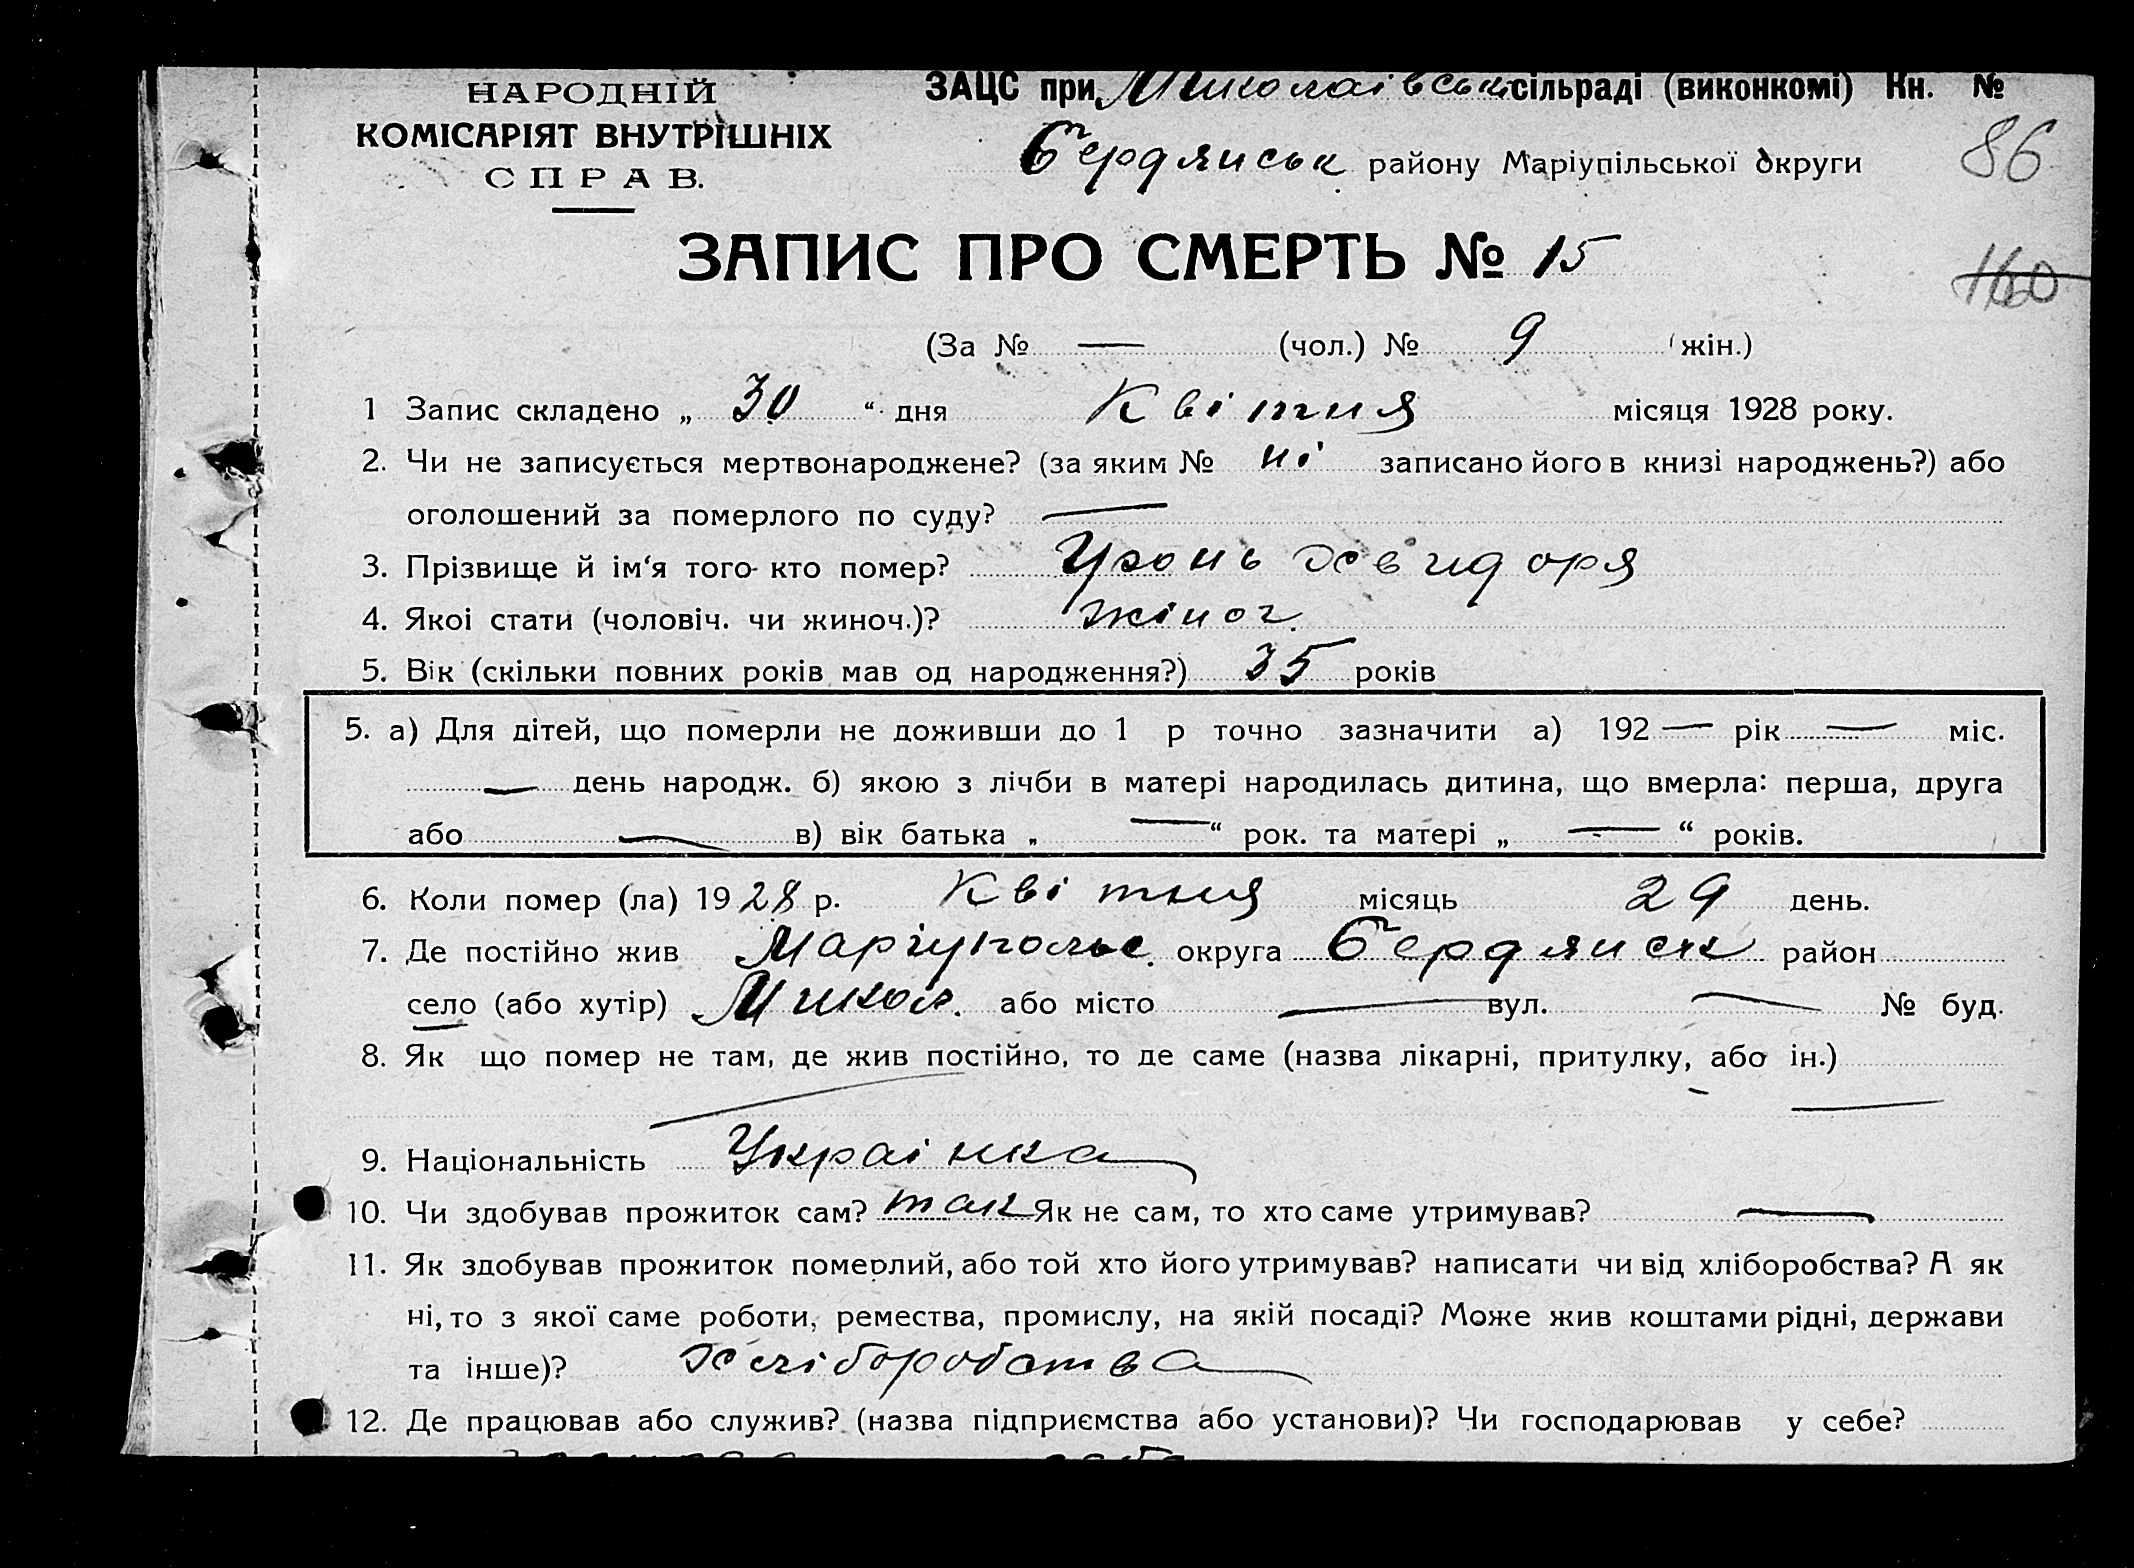 НАРОДНІЙ
КОМІСАРІЯТ ВНУТРІШНІХ
СПРАВ.
ЗАЦС при Миколаівськ сільраді (виконкомі) Кн. №
Бердянськ району Маріупільської Округи
86
160
ЗАПИС ПРО СМЕРТЬ № 15
(За № — (чол.) № 9 жін.)
1 Запис складено „ 30 “ дня Квітня місяця 1928 року.
2. Чи не записується мертвонароджене? (за яким № ні записано його в книзі народжень?) або
оголошений за померлого по суду? —
3. Прізвище й ім‘я того- кто помер? Хевидоря
4. Якоі стати (чоловіч. чи жиноч.)? жіноч.
5. Вік (скільки повних років мав од народження?) 35 років
5. а) Для дітей, що померли не доживши до 1 р точно зазначити а) 192 — рік — міс.
— день народж. б) якою з лічби в матері народилась дитина, що вмерла: перша, друга
або — в) вік батька „ — “ рок. та матері „ — “ років.
6. Коли помер (ла) 1928 р. Квітня місяць 29 день.
7. Де постійно жив Маріупольс. округа Бердянськ район
село (або хутір) Микол. або місто — вул. — № буд.
8. Як що помер не там, де жив постійно, то де саме (назва лікарні, притулку, або ін.)
9. Національність Украінка
10. Чи здобував прожиток сам? так Як не сам, то хто саме утримував? —
11. Як здобував прожиток померлий, або той хто його утримував? написати чи від хліборобства? А як
ні, то з якої саме роботи, ремества, промислу, на якій посаді? Може жив коштами рідні, держави
та інше)? Хліборобства
12. Де працював або служив? (назва підприємства або установи)? Чи господарював у себе?